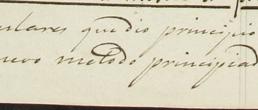 ulares que dio principio
uevo metodo principiad